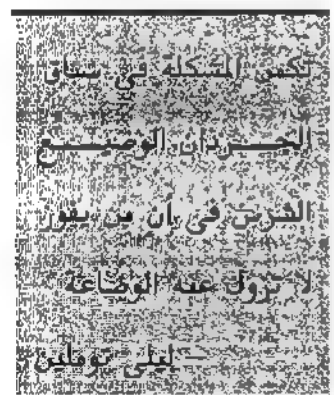 تكمن المشكلة فى سباق
الجـــرذان الوضيـــع
فى أن من يفوز
لا تزول عنه الوضاعة
ليلى توملين